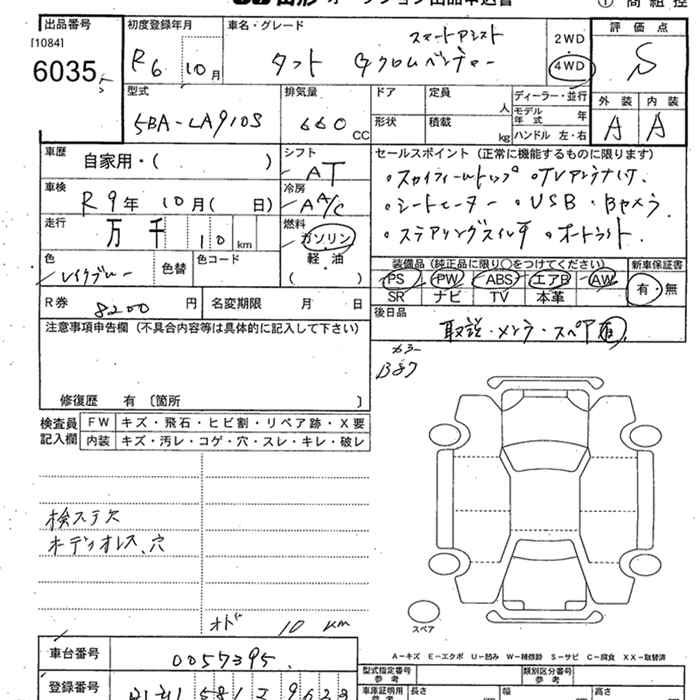 オークション出品申込書
① 商組控
出品番号
[1084]
6035
初度登録年月
R6 10月
車名・グレード
スマートアシスト
タフト Gクロムベンチャー
2WD
4WD
評価点
S
外装 内装
A A
型式
5BA-LA910S
排気量
660 CC
ドア
定員 人
形状
積載 kg
ディーラー・並行
モデル年式 年
ハンドル 左・右
車歴
自家用・( )
シフト
AT
車検
R9年 10月( 日)
冷房
AA/C
走行
万 千 10 km
燃料
ガソリン
軽・油
( )
色
レイクブルー
色替
色コード
R券
8200 円
名変期限 月 日
セールスポイント (正常に機能するものに限ります)
・スカイフィールトップ ・TVアンテナ付
・シートヒーター ・USB ・Bカメラ
・ステアリングスイッチ ・オートライト
装備品 (純正品に限り○をつけてください)
PS PW ABS エアB AW
SR ナビ TV 本革
新車保証書
有・無
後日品
取説・メンテ・スペア有
カラー
B87
注意事項申告欄 (不具合内容等は具体的に記入して下さい)
修復歴 有 〔箇所 〕
検査員
記入欄
FW キズ・飛石・ヒビ割・リペア跡・X要
内装 キズ・汚レ・コゲ・穴・スレ・キレ・破レ
検ステ欠
オーディオレス、穴
オド 10 km
スペア
A-キズ E-エクボ U-凹み W-補修跡 S-サビ C-腐食 XX-取替済
車台番号
0057395
登録番号
581
型式指定番号
参考
類別区分番号
参考
車庫証明用
参考
長さ
幅
高さ